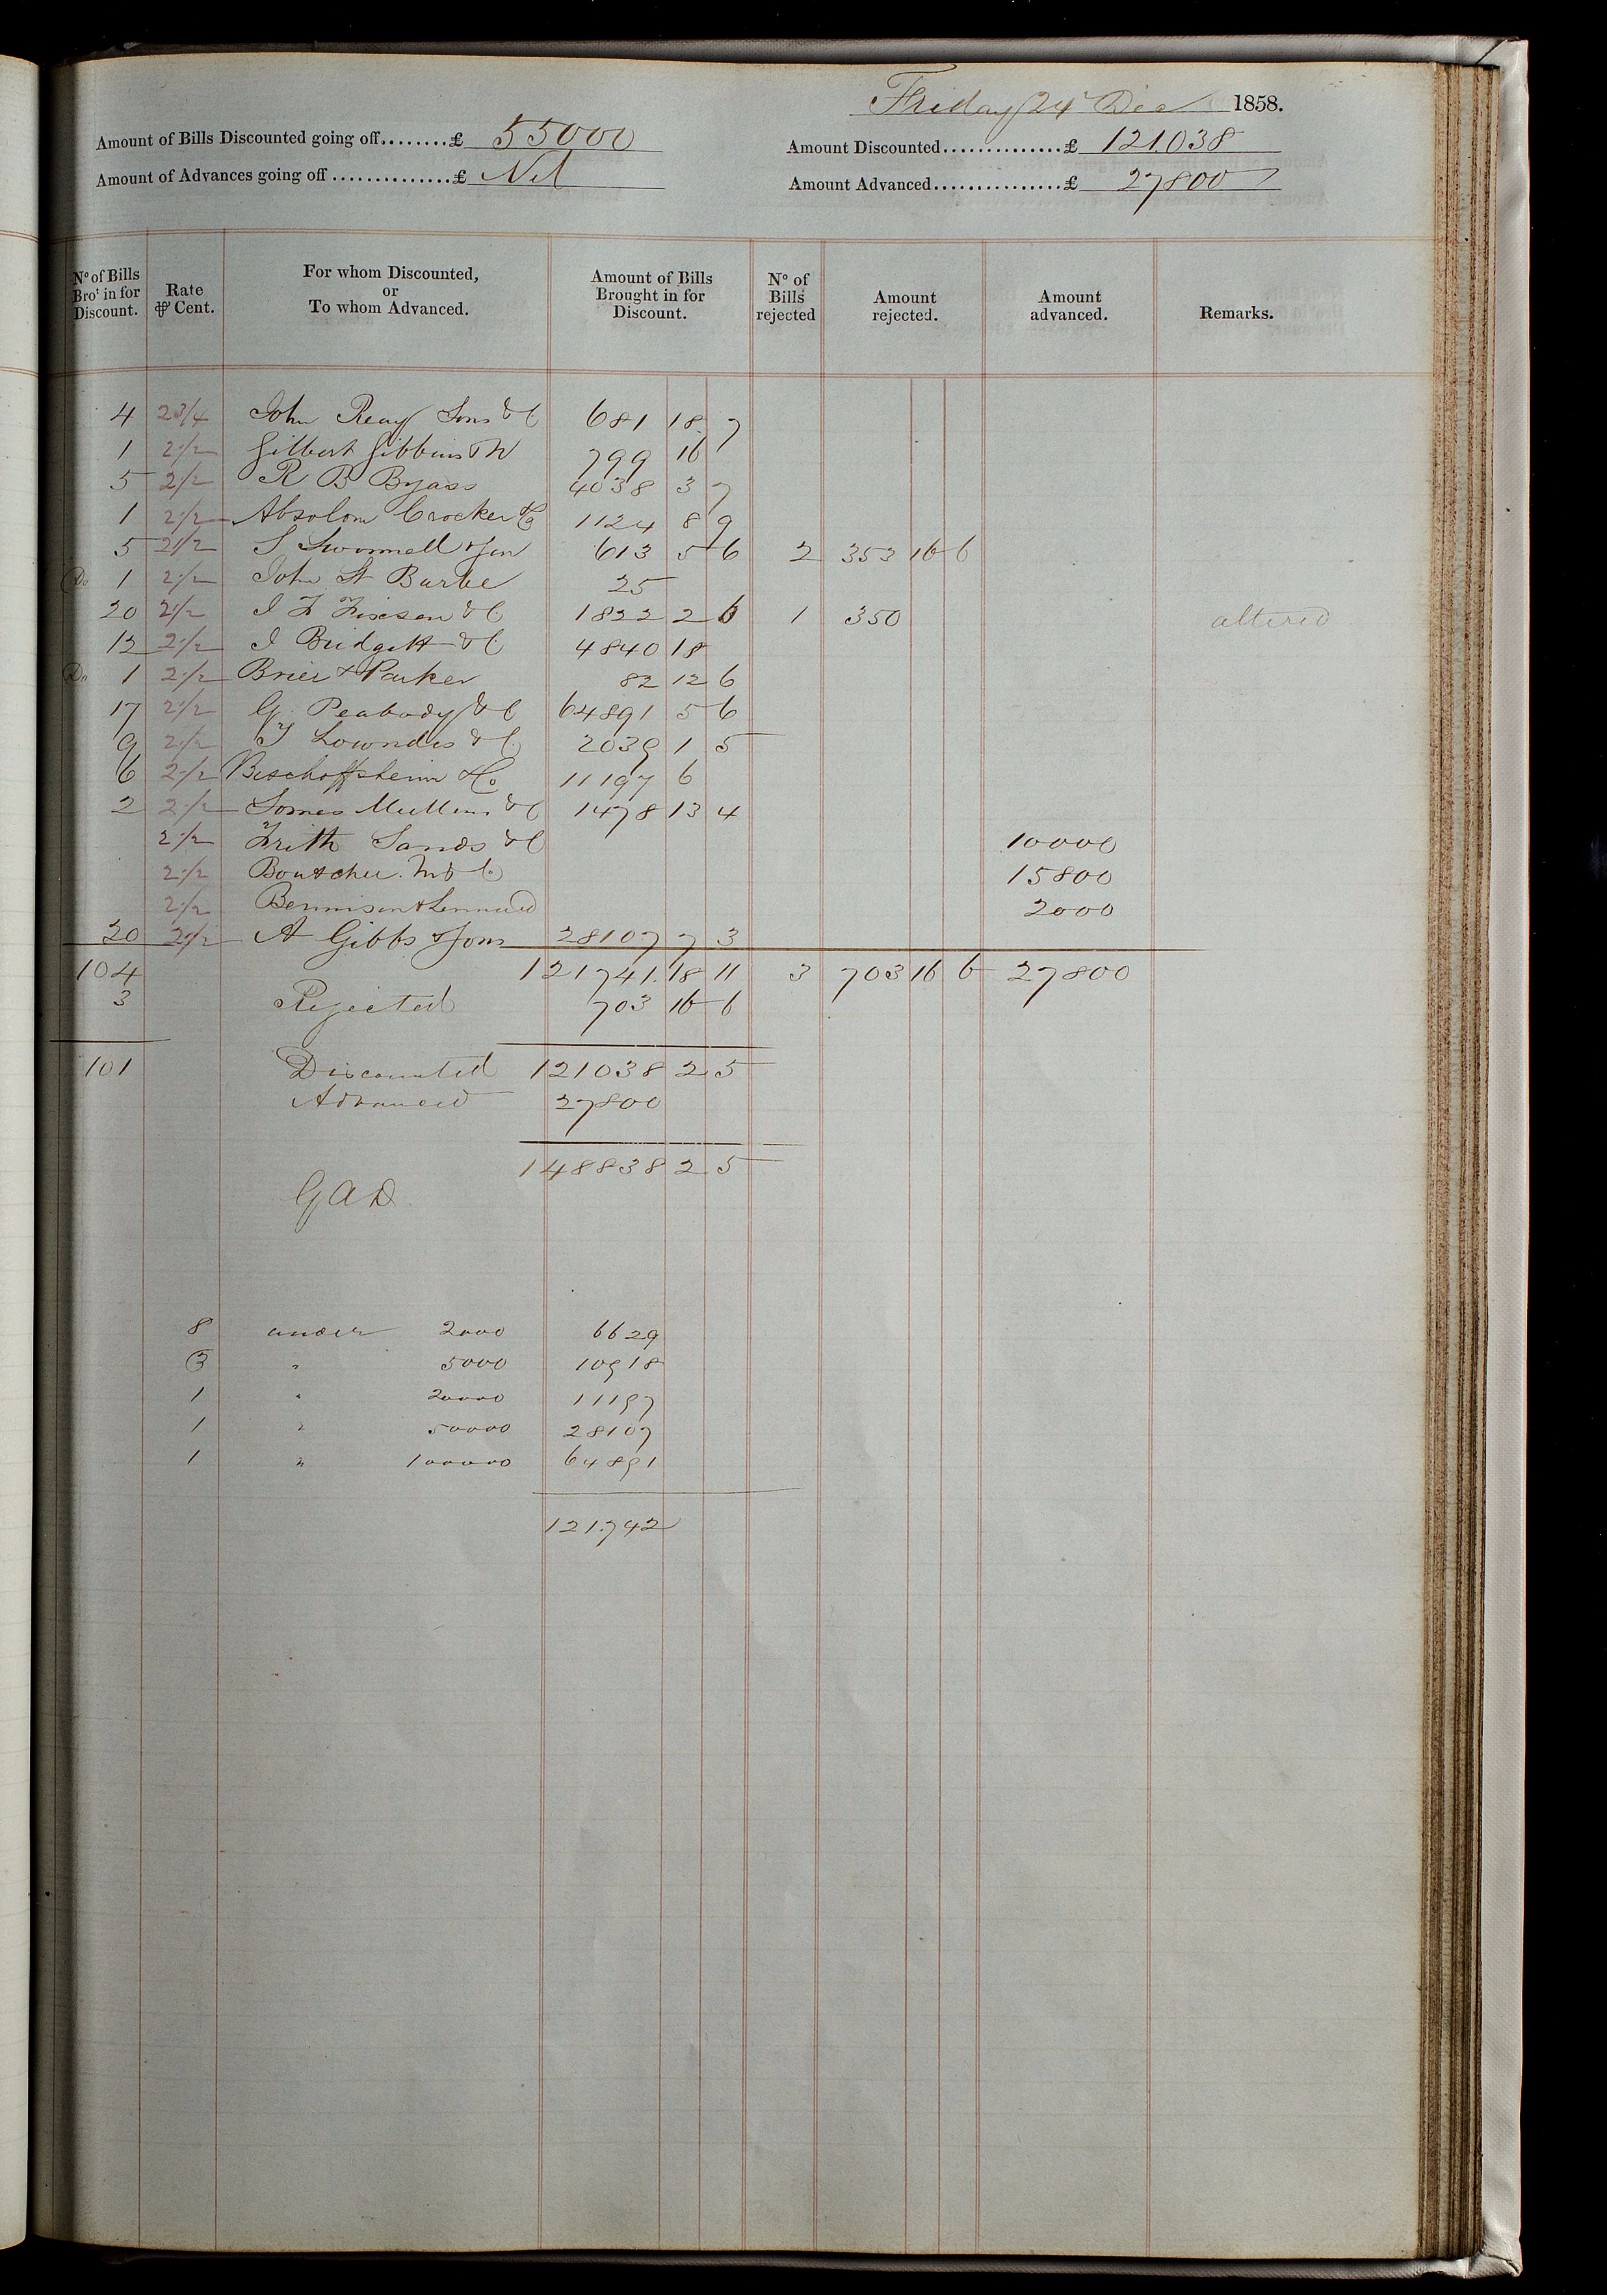 Friday 24 Dec 1858.
Amount of Bills Discounted going off........£ 55000
Amount Discounted..............£ 121.038
Amount of Advances going off..............£ Nil
Amount Advanced...............£ 27800
Nº of Bills Broᵗ in for Discount. Rate ⅌ Cent. For whom Discounted, or To whom Advanced. Amount of Bills Brought in for Discount. Nº of Bills rejected Amount rejected. Amount advanced. Remarks.
4 2 3/4 John Reay Sons & C 681 18 7
1 2 1/2 Gilbert Gibbins & W 799 16
5 2 1/2 R B Byass 4038 3 7
1 2 1/2 Absolom Crocker & Co 1124 8 9
5 2 1/2 S Swonnell & Son 613 5 6 2 353 16 6
Do 1 2 1/2 John St Barbe 25
20 2 1/2 I F Fixsen & C 1822 2 6 1 350 altered
12 2 1/2 I Bridgett & C 4840 18
Do 1 2 1/2 Brier & Parker 82 12 6
17 2 1/2 G. Peabody & C 64891 5 6
9 2 1/2 T Lowndes & C 2039 1 5
6 2 1/2 Bischoffsheim & Co 11197 6
2 2 1/2 Somes Mullens & C 1478 13 4
2 1/2 Frith Sands & C 10000
2 1/2 Boutcher. M & C 15800
2 1/2 Bennison & 2000
20 2 1/2 A Gibbs & Sons 28107 7 3
104 121741. 18 11 3 703 16 6 27800
3 Rejected 703 16 6
101 Discounted 121038 2 5
Advanced 27800
148838 2 5
GAD
8 under 2000 6629
3 " 5000 10918
1 " 20000 11197
1 " 50000 28107
1 " 100000 64891
121.742